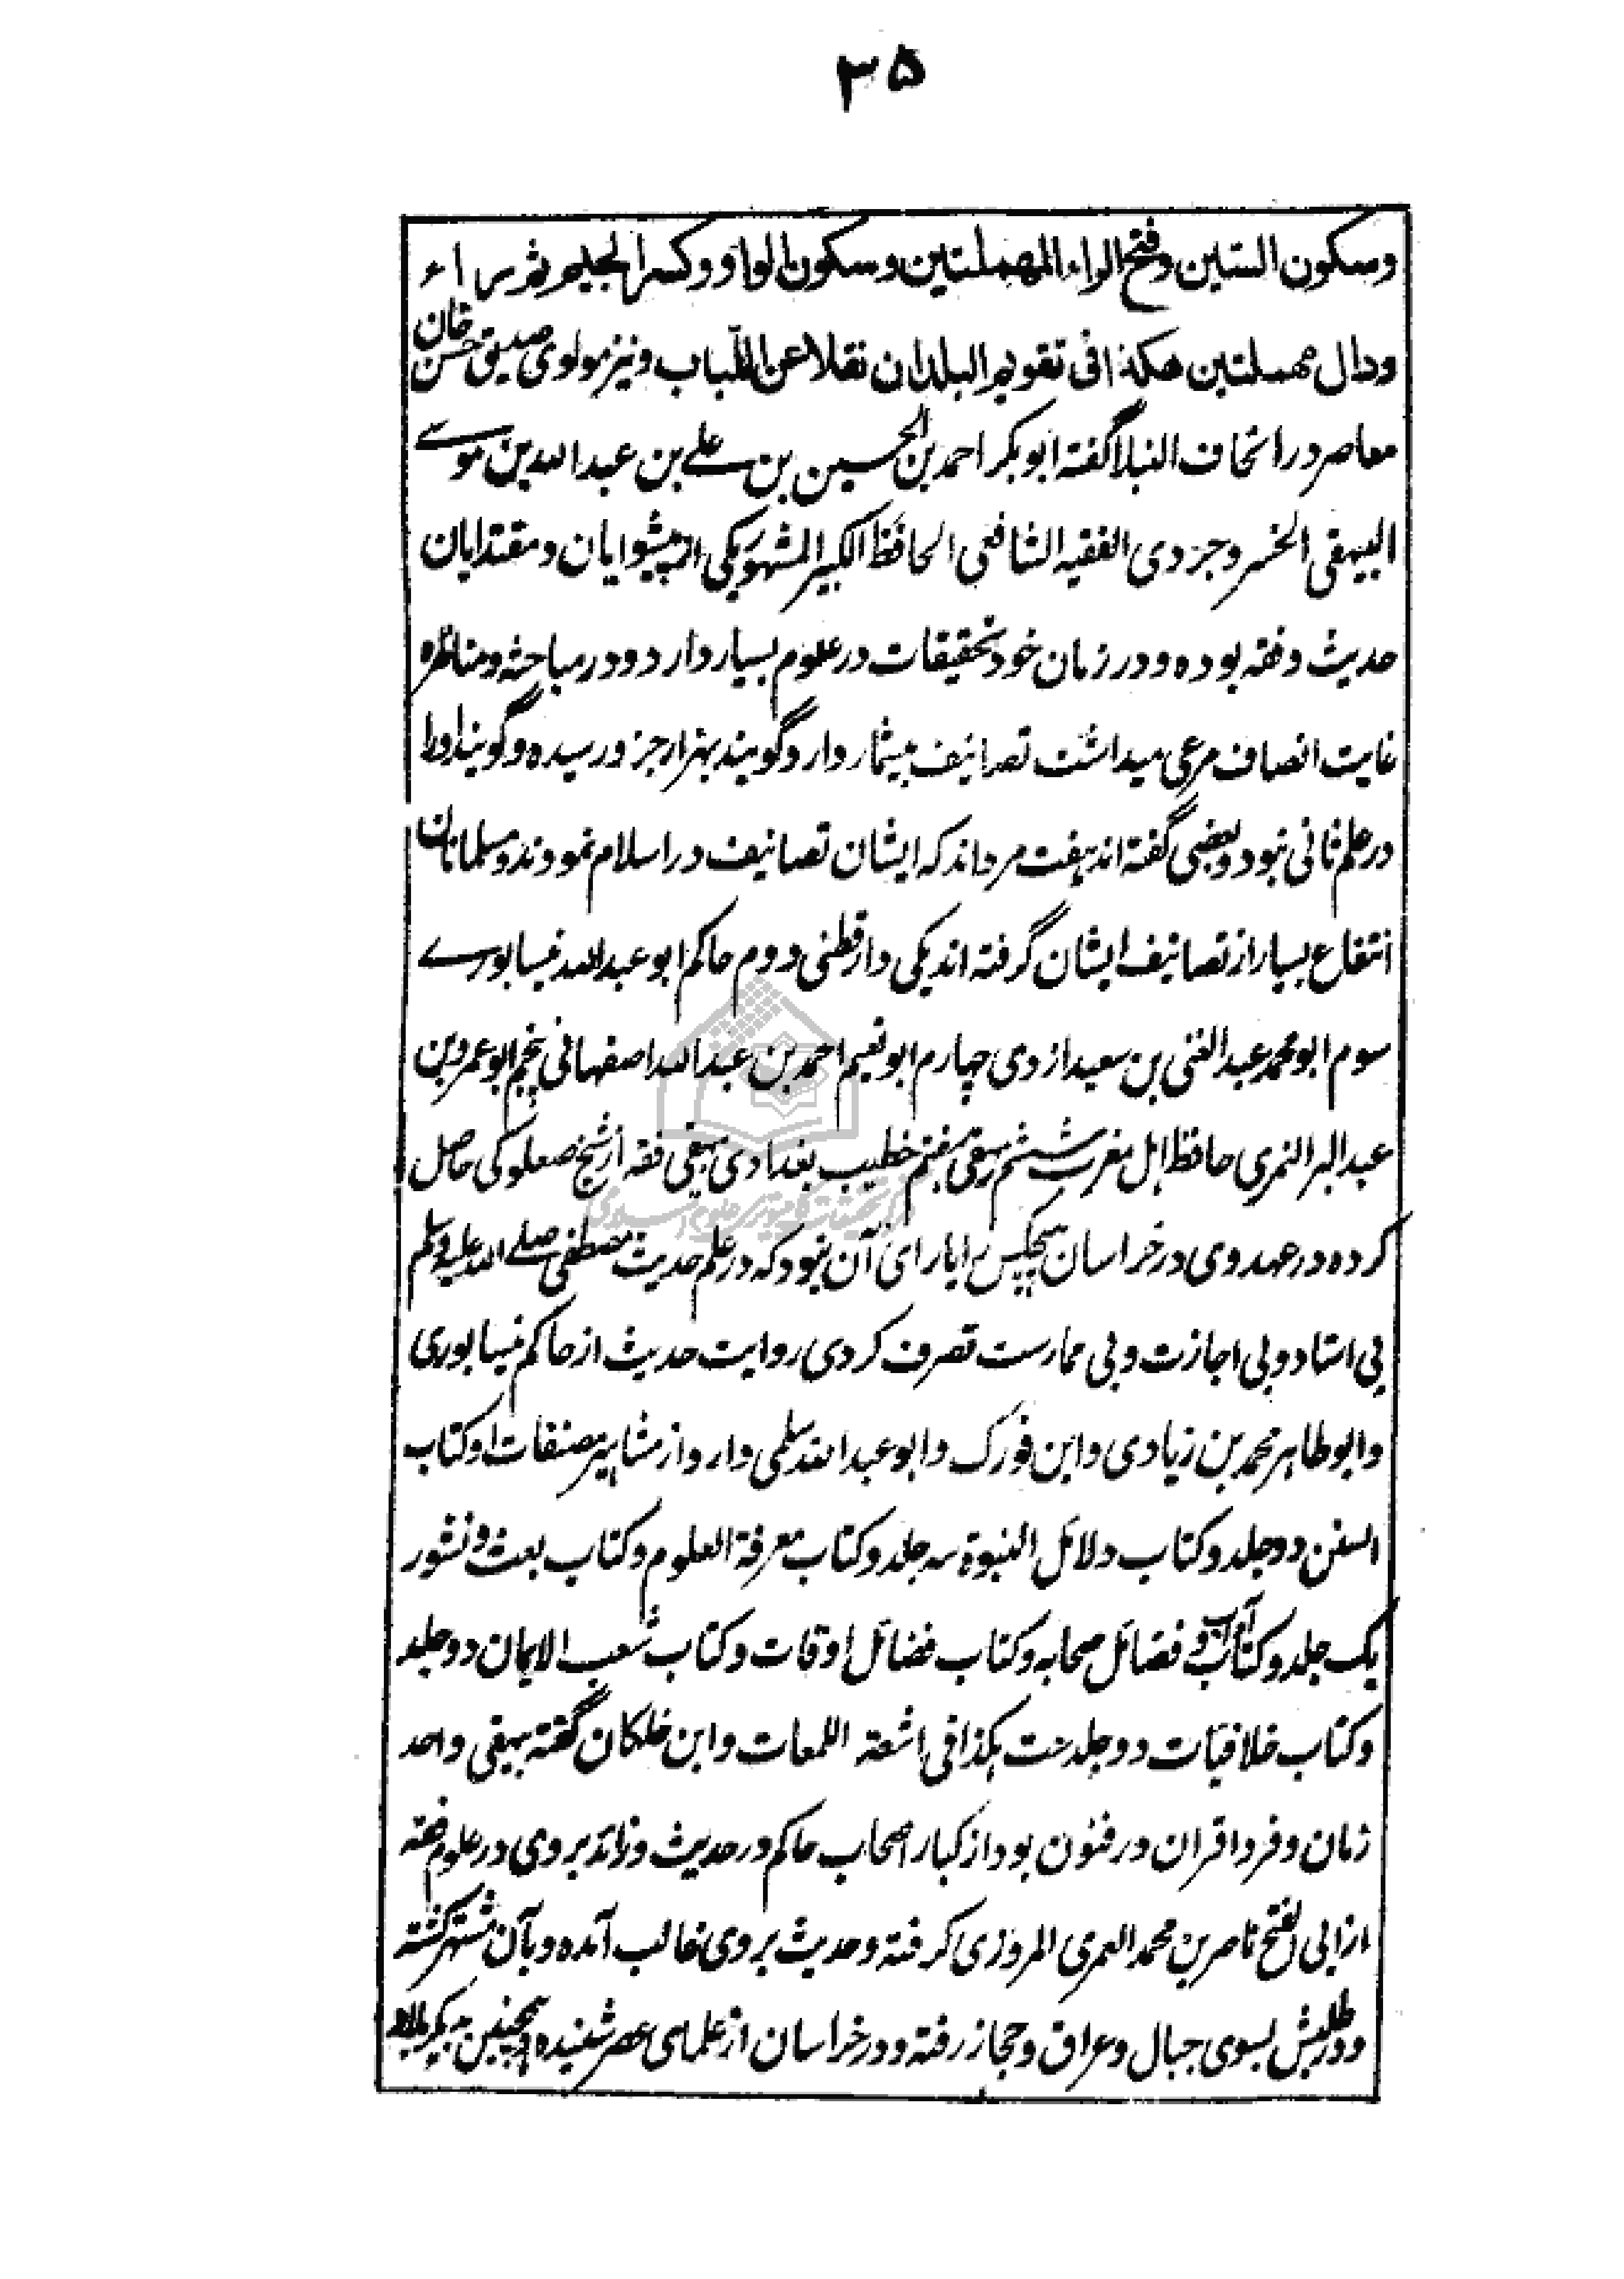 ۳۵
وسكون السّين وفتح الراء المهملتين وسكون الواو وكسر الجيم ثم راء
ودال مهملتين هكذا فى تقويم البلدان نقلا عن اللّباب ونیز مولوی صدیق حسن خان
معاصر در اتحاف النبلا گفته ابو بکر احمد بن الحسین بن علے بن عبد الله بن موسے
البیهقی الخسروجردی الفقیه الشافعی الحافظ الکبیر المشهور یکی از پیشوایان و مقتدایان
حدیث و فقه بوده و در زمان خود تحقیقات در علوم بسیار دارد و در مباحثه و مناظره
غایت انصاف مرعی میداشت تصانیف بیشمار دارد گویند بهزار جزو رسیده و گویند اورا
در علم ثانی نبود و بعضی گفته اند هفت مرداند که ایشان تصانیف در اسلام نمودند و مسلمانان
انتفاع بسیار از تصانیف ایشان گرفته اند یکی دارقطنی دوم حاکم ابو عبد الله نیسابورے
سوم ابو محمد عبد الغنی بن سعید ازدی چهارم ابو نعیم احمد بن عبد الله اصفهانی پنجم ابو عمرو بن
عبد البر النمری حافظ اهل مغرب ششم بیهقی هفتم خطیب بغدادی بیهقی فقه از شیخ صعلوکی حاصل
کرده در عهد وی در خراسان هیچکس را یارای آن نبود که در علم حدیث مصطفی صلے الله علیه وسلم
بی استاد و بی اجازت و بی ممارست تصرف کردی روایت حدیث از حاکم نیسابوری
وابو طاهر محمد بن زیادی وابن فورک وابو عبد الله سلمی دارد از مشاهیر مصنفات او کتاب
السنن دو جلد و کتاب دلائل النبوة سه جلد و کتاب معرفة العلوم و کتاب بعث و نشور
یک جلد و کتاب آداب و فضائل صحابه و کتاب فضائل اوقات و کتاب شعب الایمان دو جلد
و کتاب خلافیات دو جلدست هکذا فی اشعة اللمعات وابن خلکان گفته بیهقی واحد
زمان و فرد اقران در فنون بود از کبار اصحاب حاکم در حدیث و زائد بر وی در علوم فقه
از ابی الفتح ناصر بن محمد العمری المروزی گرفته و حدیث بر وی غالب آمده و بآن مشتهر گشته
و در طلبش بسوی جبال و عراق و حجاز رفته و در خراسان از علمای عصر شنیده و همچنین به دیگر بلاد